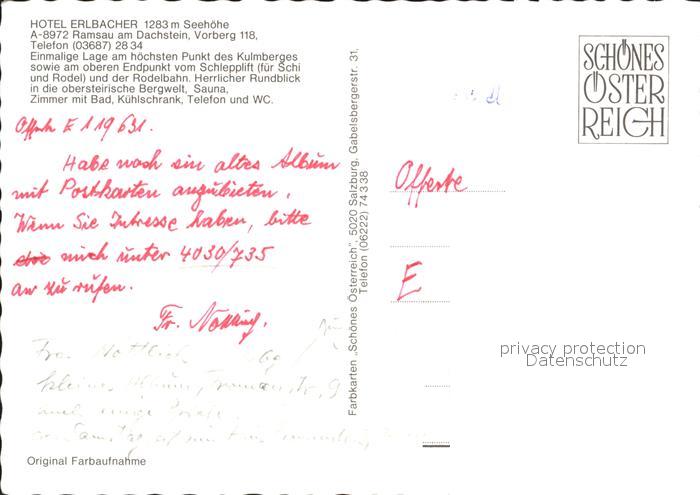 HOTEL ERLBACHER 1283 m Seehöhe
A-8972 Ramsau am Dachstein, Vorberg 118,
Telefon (03687) 28 34
Einmalige Lage am höchsten Punkt des Kulmberges
sowie am oberen Endpunkt vom Schlepplift (für Schi
und Rodel) und der Rodelbahn. Herrlicher Rundblick
in die obersteirische Bergwelt, Sauna,
Zimmer mit Bad, Kühlschrank, Telefon und WC.
Offerte E 119 631.
Habe noch ein altes Album
mit Postkarten anzubieten.
Wenn Sie Intresse haben, bitte
mich unter 4030/735
an zu rufen.
Fr.
kleines Album,
Original Farbaufnahme
Farbkarten „Schönes Österreich", 5020 Salzburg, Gabelsbergerstr. 31,
Telefon (06222) 74 3 38
SCHÖNES
ÖSTER
REICH
Offerte
E
privacy protection
Datenschutz